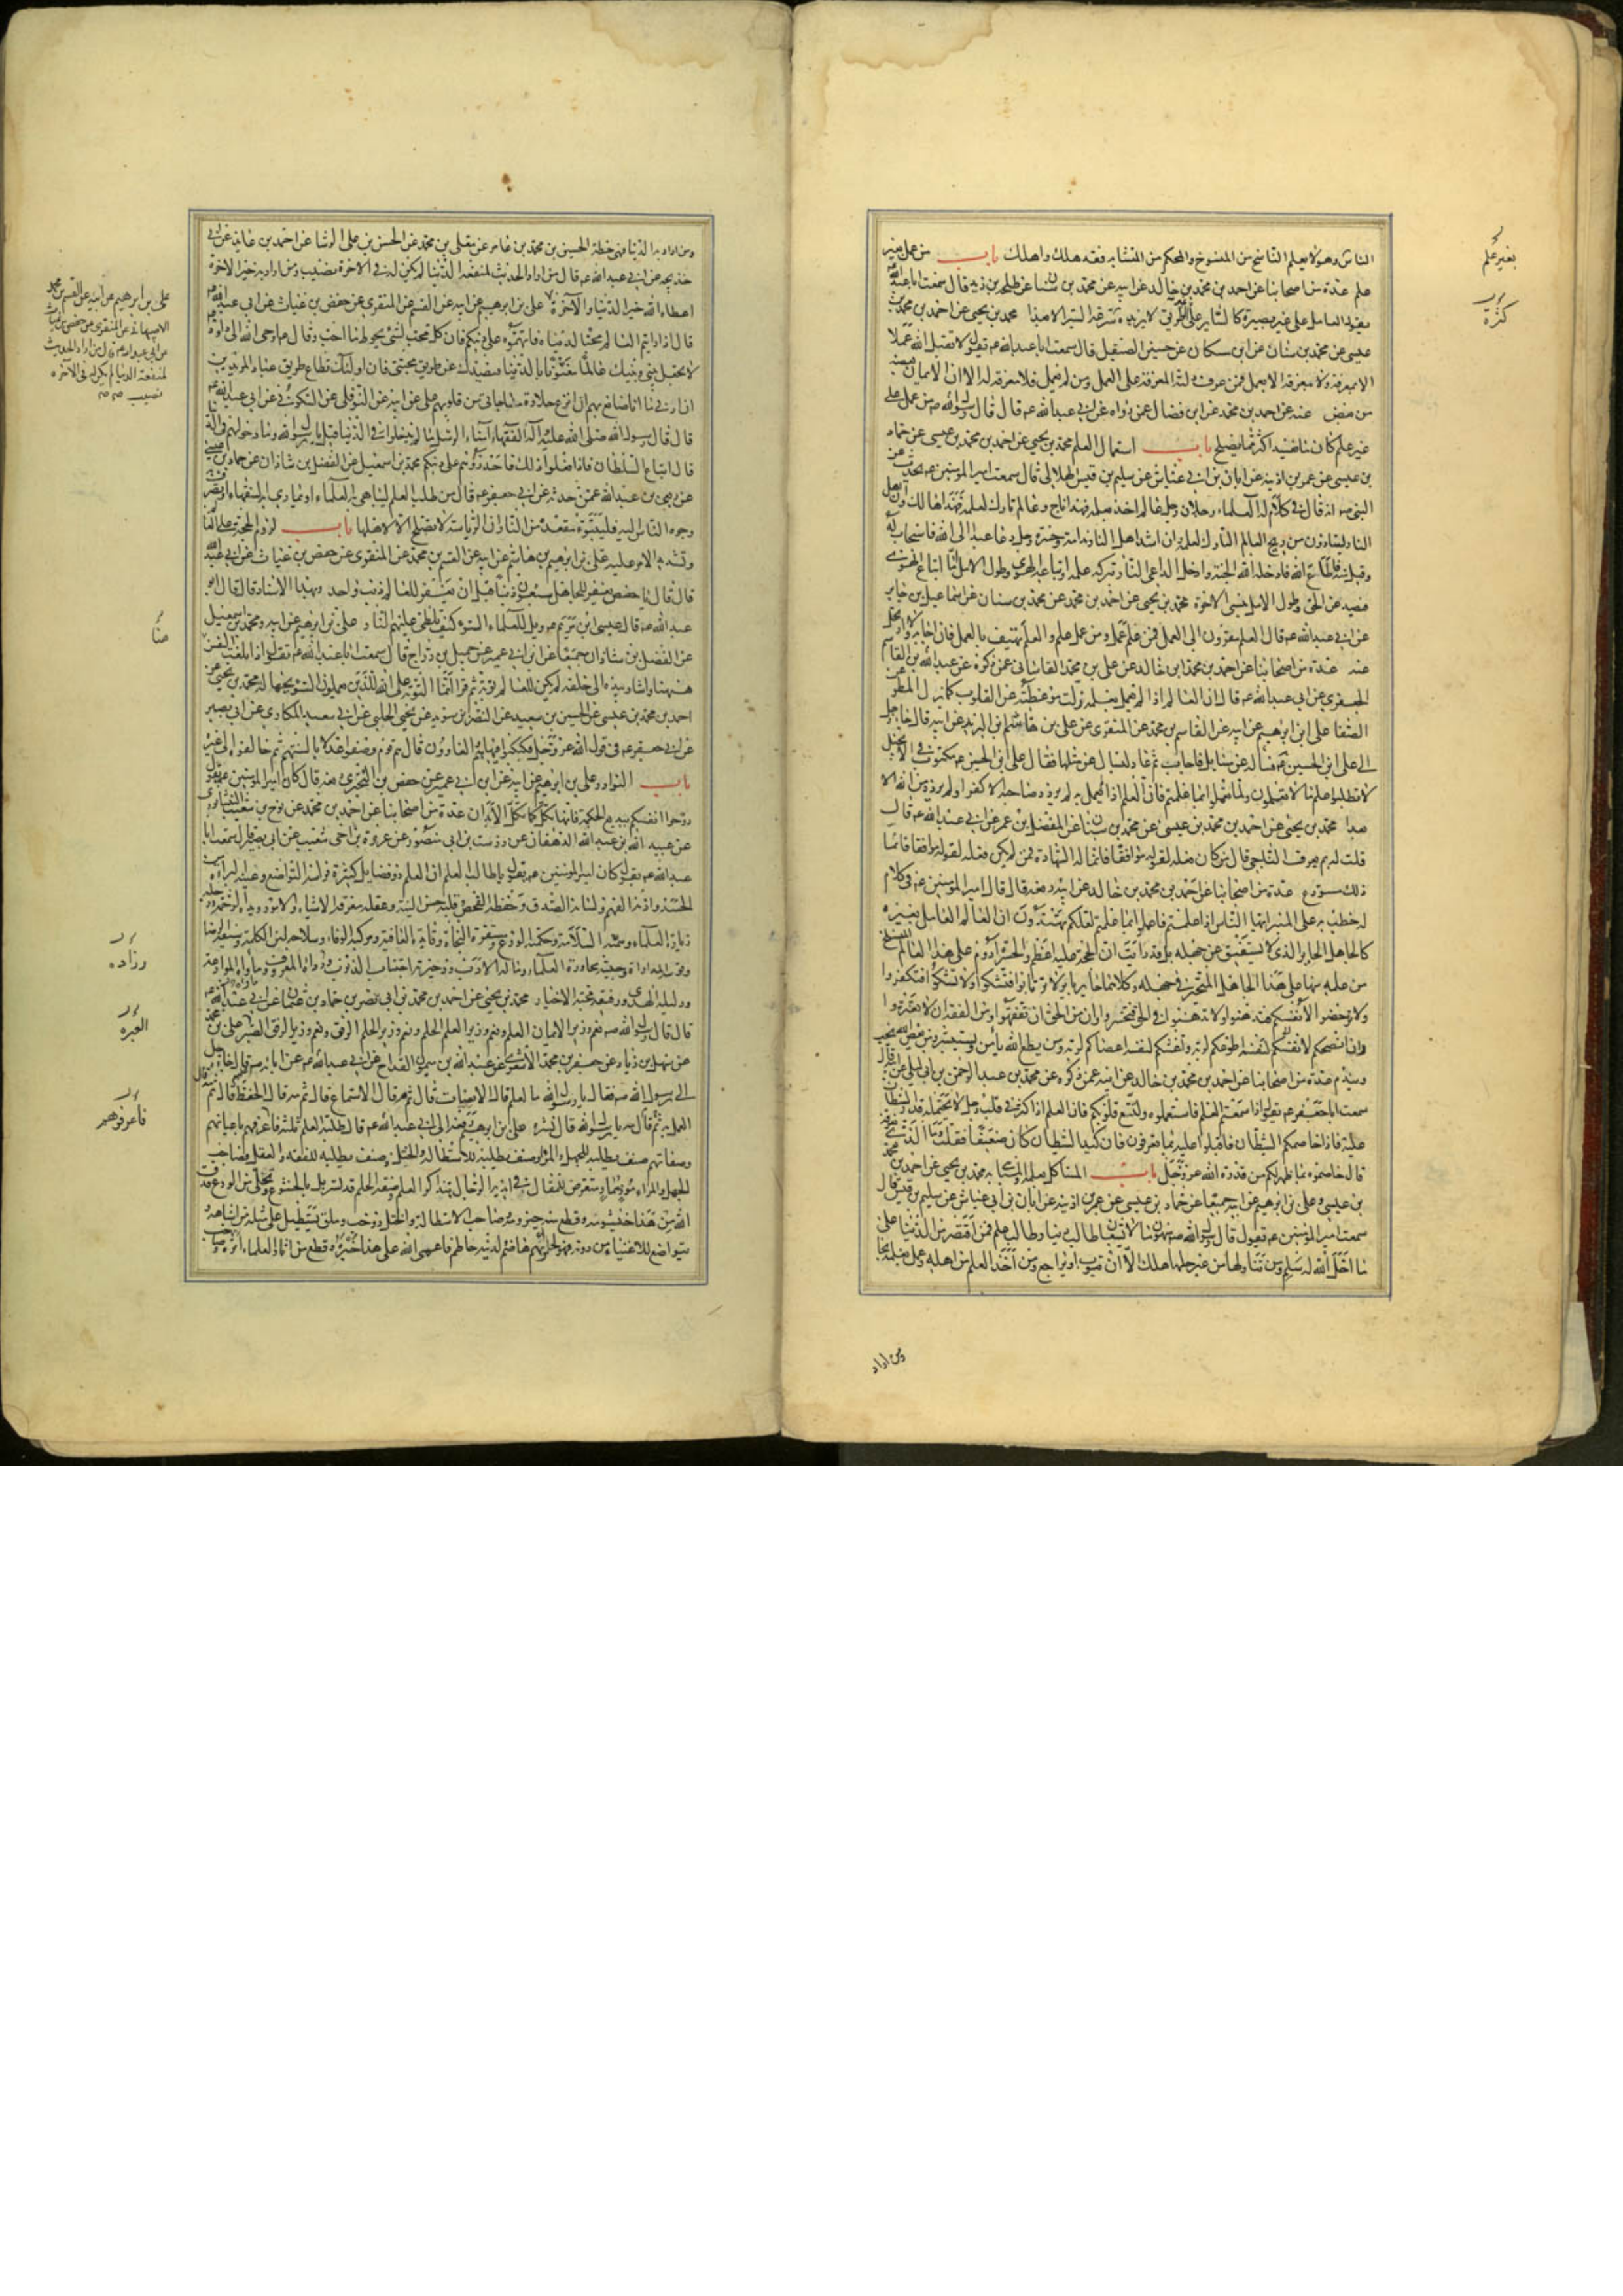 الناس وهو لا يعلم الناسخ من المنسوخ والمحكم من المتشابه فقد هلك واهلك باب من عمل بغير
علم عدة من اصحابنا عن احمد بن محمد بن خالد عن ابيه عن محمد بن سنان عن طلحة بن زيد قال سمعت ابا عبدالله
يقول العامل على غير بصيرة كالساير على الطريق لا يزيده سرعة السير الا بعدا محمد بن يحيى عن احمد بن محمد بن
عيسى عن محمد بن سنان عن ابن مسكان عن حسين الصيقل قال سمعت ابا عبدالله عم يقول لا يقبل الله عملا
الا بمعرفة ولا معرفة الا بعمل فمن عرف دلته المعرفة على العمل ومن لم يعمل فلا معرفة له الا ان الايمان بعضه
من بعض عنه عن احمد بن محمد عن ابن فضال عمن رواه عن ابي عبدالله عم قال قال رسول الله صم من عمل على
غير علم كان ما يفسد اكثر مما يصلح باب استعمال العلم محمد بن يحيى عن احمد بن محمد بن عيسى عن حماد
بن عيسى عن عمر بن اذينة عن ابان بن ابي عياش عن سليم بن قيس الهلالي قال سمعت امير المؤمنين عم يحدث عن
النبي صم انه قال في كلام له العلماء رجلان رجل عالم اخذ بعلمه فهذا ناج وعالم تارك لعلمه فهذا هالك وان اهل
النار ليتاذون من ريح العالم التارك لعلمه وان اشد اهل النار ندامة وحسرة رجل دعا عبدا الى الله فاستجاب له
وقبل منه فاطاع الله فادخله الله الجنة وادخل الداعي النار بتركه علمه واتباعه الهوى وطول الامل اما اتباع الهوى
فيصد عن الحق وطول الامل ينسي الاخرة محمد بن يحيى عن احمد بن محمد عن محمد بن سنان عن اسماعيل بن جابر
عن ابي عبدالله عم قال العلم مقرون الى العمل فمن علم عمل ومن عمل علم والعلم يهتف بالعمل فان اجابه والا ارتحل
عنه عدة من اصحابنا عن احمد بن محمد بن خالد عن علي بن محمد القاساني عمن ذكره عن عبدالله بن القاسم
الجعفري عن ابي عبدالله عم قال ان العالم اذا لم يعمل بعلمه زلت موعظته عن القلوب كما يزل المطر
الصفا علي بن ابرهيم عن ابيه عن القاسم بن محمد عن المنقري عن علي بن هاشم بن البريد عن ابيه قال جاء رجل
الى علي ابن الحسين عم فسأله عن مسايل فاجاب ثم عاد ليسأل عن مثلها فقال علي ابن الحسين عم مكتوب في الانجيل
لا تطلبوا علم ما لا تعملون ولما تعملوا بما علمتم فان العلم اذا لم يعمل به لم يزدد صاحبه الا كفرا ولم يزدد من الله الا
بعدا محمد بن يحيى عن احمد بن محمد بن عيسى عن محمد بن سنان عن المفضل بن عمر عن ابي عبدالله عم قال
قلت له بم يعرف الناجي قال من كان فعله لقوله موافقا فاثبت له الشهادة فمن لم يكن فعله لقوله موافقا فانما
ذلك مستودع عدة من اصحابنا عن احمد بن محمد بن خالد عن ابيه رفعه قال قال امير المؤمنين عم في كلام
له خطب به على المنبر ايها الناس اذا علمتم فاعملوا بما علمتم لعلكم تهتدون ان العالم العامل بغيره
كالجاهل الحاير الذي لا يستفيق عن جهله بل قد رأيت ان الحجة عليه اعظم والحسرة ادوم على هذا العالم المنسلخ
من علمه منها على هذا الجاهل المتحير في جهله وكلاهما حاير باير لا ترتابوا فتشكوا ولا تشكوا فتكفروا
ولا ترخصوا لانفسكم فتدهنوا ولا تدهنوا في الحق فتخسروا وان من الحق ان تفقهوا ومن الفقه ان لا تغتروا
وان انصحكم لنفسه اطوعكم لربه واغشكم لنفسه اعصاكم لربه ومن يطع الله يأمن ويستبشر ومن يعص الله يخب
ويندم عدة من اصحابنا عن احمد بن محمد بن خالد عن ابيه عمن ذكره عن محمد بن عبدالرحمن بن ابي ليلى عن ابيه قال
سمعت ابا جعفر عم يقول اذا سمعتم العلم فاستعملوه ولتتسع قلوبكم فان العلم اذا كثر في قلب رجل لا يحتمله قدر الشيطان
عليه فاذا خاصمكم الشيطان فاقبلوا عليه بما تعرفون فان كيد الشيطان كان ضعيفا فقلت وما الذي نعرفه
قال خاصموه بما ظهر لكم من قدرة الله عز وجل باب المستاكل بعلمه والمباهي به محمد بن يحيى عن احمد بن محمد
بن عيسى وعلي بن ابرهيم عن ابيه جميعا عن حماد بن عيسى عن عمر بن اذينة عن ابان بن ابي عياش عن سليم بن قيس قال
سمعت امير المؤمنين عم يقول قال رسول الله صم منهومان لا يشبعان طالب دنيا وطالب علم فمن اقتصر من الدنيا على
ما احل الله له سلم ومن تناولها من غير حلها هلك الا ان يتوب او يراجع ومن اخذ العلم من اهله وعمل بعلمه نجا
ومن اراد
بغير علم
كثرة
ومن اراد به الدنيا فهي حظه الحسين بن محمد بن عامر عن معلى بن محمد عن الحسن بن علي الوشا عن احمد بن عايذ عن ابي
خديجة عن ابي عبدالله عم قال من اراد الحديث لمنفعة الدنيا لم يكن له في الاخرة نصيب ومن اراد به خير الاخرة
اعطاه الله خير الدنيا والآخرة علي بن ابرهيم عن ابيه عن القسم عن المنقري عن حفص بن غياث عن ابي عبدالله عم
قال اذا رايتم العالم محبا لدنياه فاتهموه على دينكم فان كل محب لشيء يحوط ما احب وقال عم اوحى الله الى داود
لا تجعل بيني وبينك عالما مفتونا بالدنيا فيصدك عن طريق محبتي فان اولئك قطاع طريق عبادي المريدين
ان ادنى ما انا صانع بهم ان انزع حلاوة مناجاتي من قلوبهم علي عن ابيه عن النوفلي عن السكوني عن ابي عبدالله عم
قال قال رسول الله صلى الله عليه وآله الفقهاء امناء الرسل ما لم يدخلوا في الدنيا قيل يا رسول الله وما دخولهم في الدنيا
قال اتباع السلطان فاذا فعلوا ذلك فاحذروهم على دينكم محمد بن اسمعيل عن الفضل بن شاذان عن حماد بن عيسى
عن ربعي بن عبدالله عمن حدثه عن ابي جعفر عم قال من طلب العلم ليباهي به العلماء او يماري به السفهاء او يصرف
وجوه الناس اليه فليتبوء مقعده من النار ان الرياسة لا تصلح الا لاهلها باب لزوم الحجة على العالم
وتشديد الامر عليه علي بن ابرهيم بن هاشم عن ابيه عن القسم بن محمد عن المنقري عن حفص بن غياث عن ابي عبدالله
قال قال يا حفص يغفر للجاهل سبعون ذنبا قبل ان يغفر للعالم ذنب واحد وبهذا الاسناد قال قال ابو
عبدالله عم قال عيسى ابن مريم عم ويل للعلماء السوء كيف تلظى عليهم النار علي بن ابرهيم عن ابيه ومحمد بن اسمعيل
عن الفضل بن شاذان جميعا عن ابن ابي عمير عن جميل بن دراج قال سمعت ابا عبدالله عم يقول اذا بلغت النفس
ههنا واشار بيده الى حلقه لم يكن للعالم توبة ثم قرا انما التوبة على الله للذين يعملون السوء بجهالة محمد بن يحيى عن
احمد بن محمد بن عيسى عن الحسين بن سعيد عن النضر بن سويد عن يحيى الحلبي عن ابي سعيد المكاري عن ابي بصير
عن ابي جعفر عم في قول الله عز وجل فكبكبوا فيها هم والغاوون قال هم قوم وصفوا عدلا بالسنتهم ثم خالفوه الى غيره
باب النوادر علي بن ابرهيم عن ابيه عن ابن ابي عمير عن حفص بن البختري رفعه قال كان امير المؤمنين عم يقول
روحوا انفسكم ببديع الحكمة فانها تكل كما تكل الابدان عدة من اصحابنا عن احمد بن محمد عن نوح بن شعيب النيشابوري
عن عبيد الله بن عبدالله الدهقان عن درست بن ابي منصور عن عروة بن اخي شعيب عن ابي بصير قال سمعت ابا
عبدالله عم يقول كان امير المؤمنين عم يقول يا طالب العلم ان العلم ذو فضايل كثيرة فراسه التواضع وعينه البراءة من
الحسد واذنه الفهم ولسانه الصدق وحفظه الفحص وقلبه حسن النية وعقله معرفة الاشياء والامور ويده الرحمة ورجله
زيارة العلماء وهمته السلامة وحكمته الورع ومستقره النجاة وقايده العافية ومركبه الوفاء وسلاحه لين الكلمة وسيفه الرضا
وقوسه المداراة وجيشه محاورة العلماء وماله الادب وذخيرته اجتناب الذنوب وزاده المعروف وماواه الموادعة
ودليله الهدى ورفيقه محبة الاخيار محمد بن يحيى عن احمد بن محمد بن ابي نصر عن حماد بن عثمان عن ابي عبدالله عم
قال قال رسول الله صم نعم وزير الايمان العلم ونعم وزير العلم الحلم ونعم وزير الحلم الرفق ونعم وزير الرفق الصبر علي بن محمد
عن سهل بن زياد عن جعفر بن محمد الاشعري عن عبدالله بن ميمون القداح عن ابي عبدالله عم عن ابائه عم قال جاء رجل
الى رسول الله صم فقال يا رسول الله ما العلم قال الانصات قال ثم مه قال الاستماع قال ثم مه قال الحفظ قال ثم مه قال
العمل به ثم قال مه يا رسول الله قال نشره علي بن ابرهيم رفعه الى ابي عبدالله عم قال طلبة العلم ثلثة فاعرفهم باعيانهم
وصفاتهم صنف يطلبه للجهل والمراء وصنف يطلبه للاستطالة والختل وصنف يطلبه للفقه والعقل فصاحب
الجهل والمراء موذ ممار متعرض للمقال في اندية الرجال بتذاكر العلم وصفة الحلم قد تسربل بالخشوع وتخلى من الورع فدق
الله من هذا خيشومه وقطع منه حيزومه وصاحب الاستطالة والختل ذو خب وملق يستطيل على مثله من اشباهه
ويتواضع للاغنياء من دونه فهو لحلوائهم هاضم لدينه حاطم فاعمى الله على هذا خبره وقطع من اثار العلماء اثره وصاحب
علي بن ابرهيم عن ابيه عن القسم بن محمد
الاصبهاني عن المنقري عن حفص بن غياث
عن ابي عبدالله عم قال من اراد الحديث
لمنفعة الدنيا لم يكن له في الآخرة
نصيب صح صح
هنا
وزاده
العبرة
فاعرفوهم